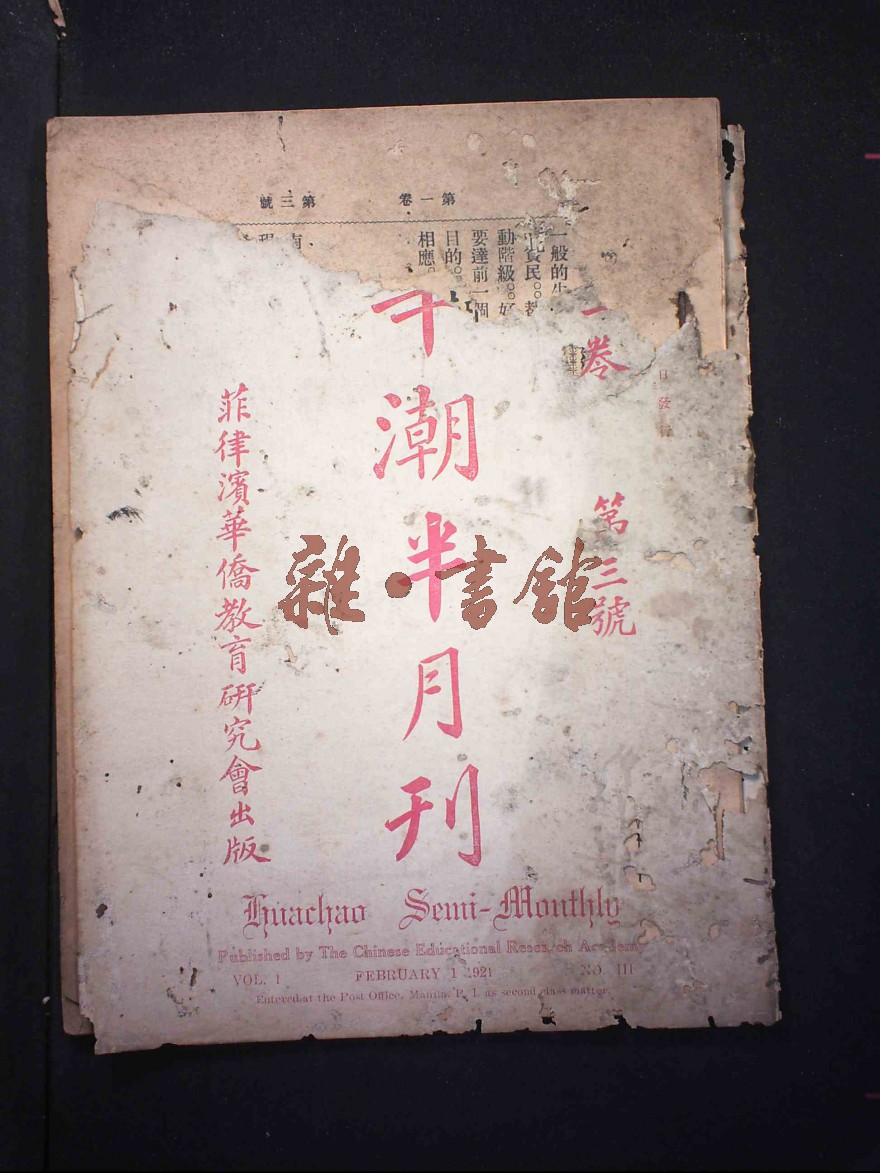 第一卷 第三號
一般的
貧民○○
動階級○○好
要達前一個
目的○○
相應○
一卷 第三號
日發
潮半月刊
菲律濱華僑教育研究會出版
雜·書舘
Huachao Semi-Monthly
Published by The Chinese Educational Research Academy
VOL. 1 FEBRUARY 1 1921 NO. III
Entered at the Post Office, Manila, P. I. as second class matter.